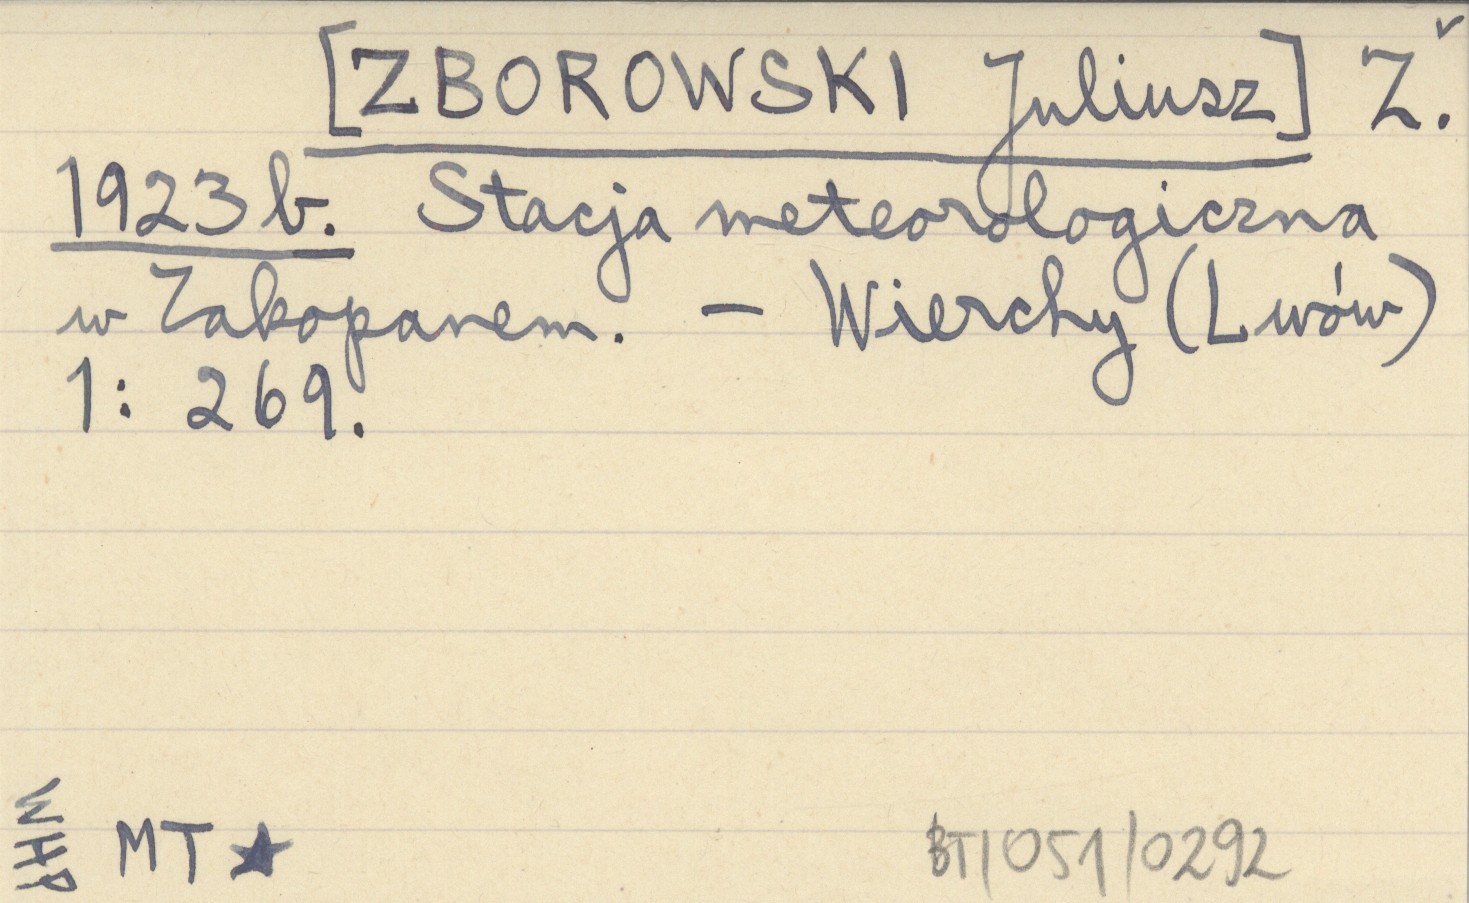 [ZBOROWSKI Juliusz] Z. ˇ
1923b. Stacja meteorologiczna
w Zakopanem. – Wierchy (Lwów)
1: 269.
WHP
MT ★
BT/051/0292